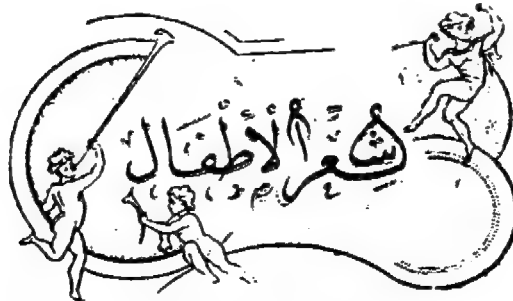 شِعْرُ الْأَطْفَالْ